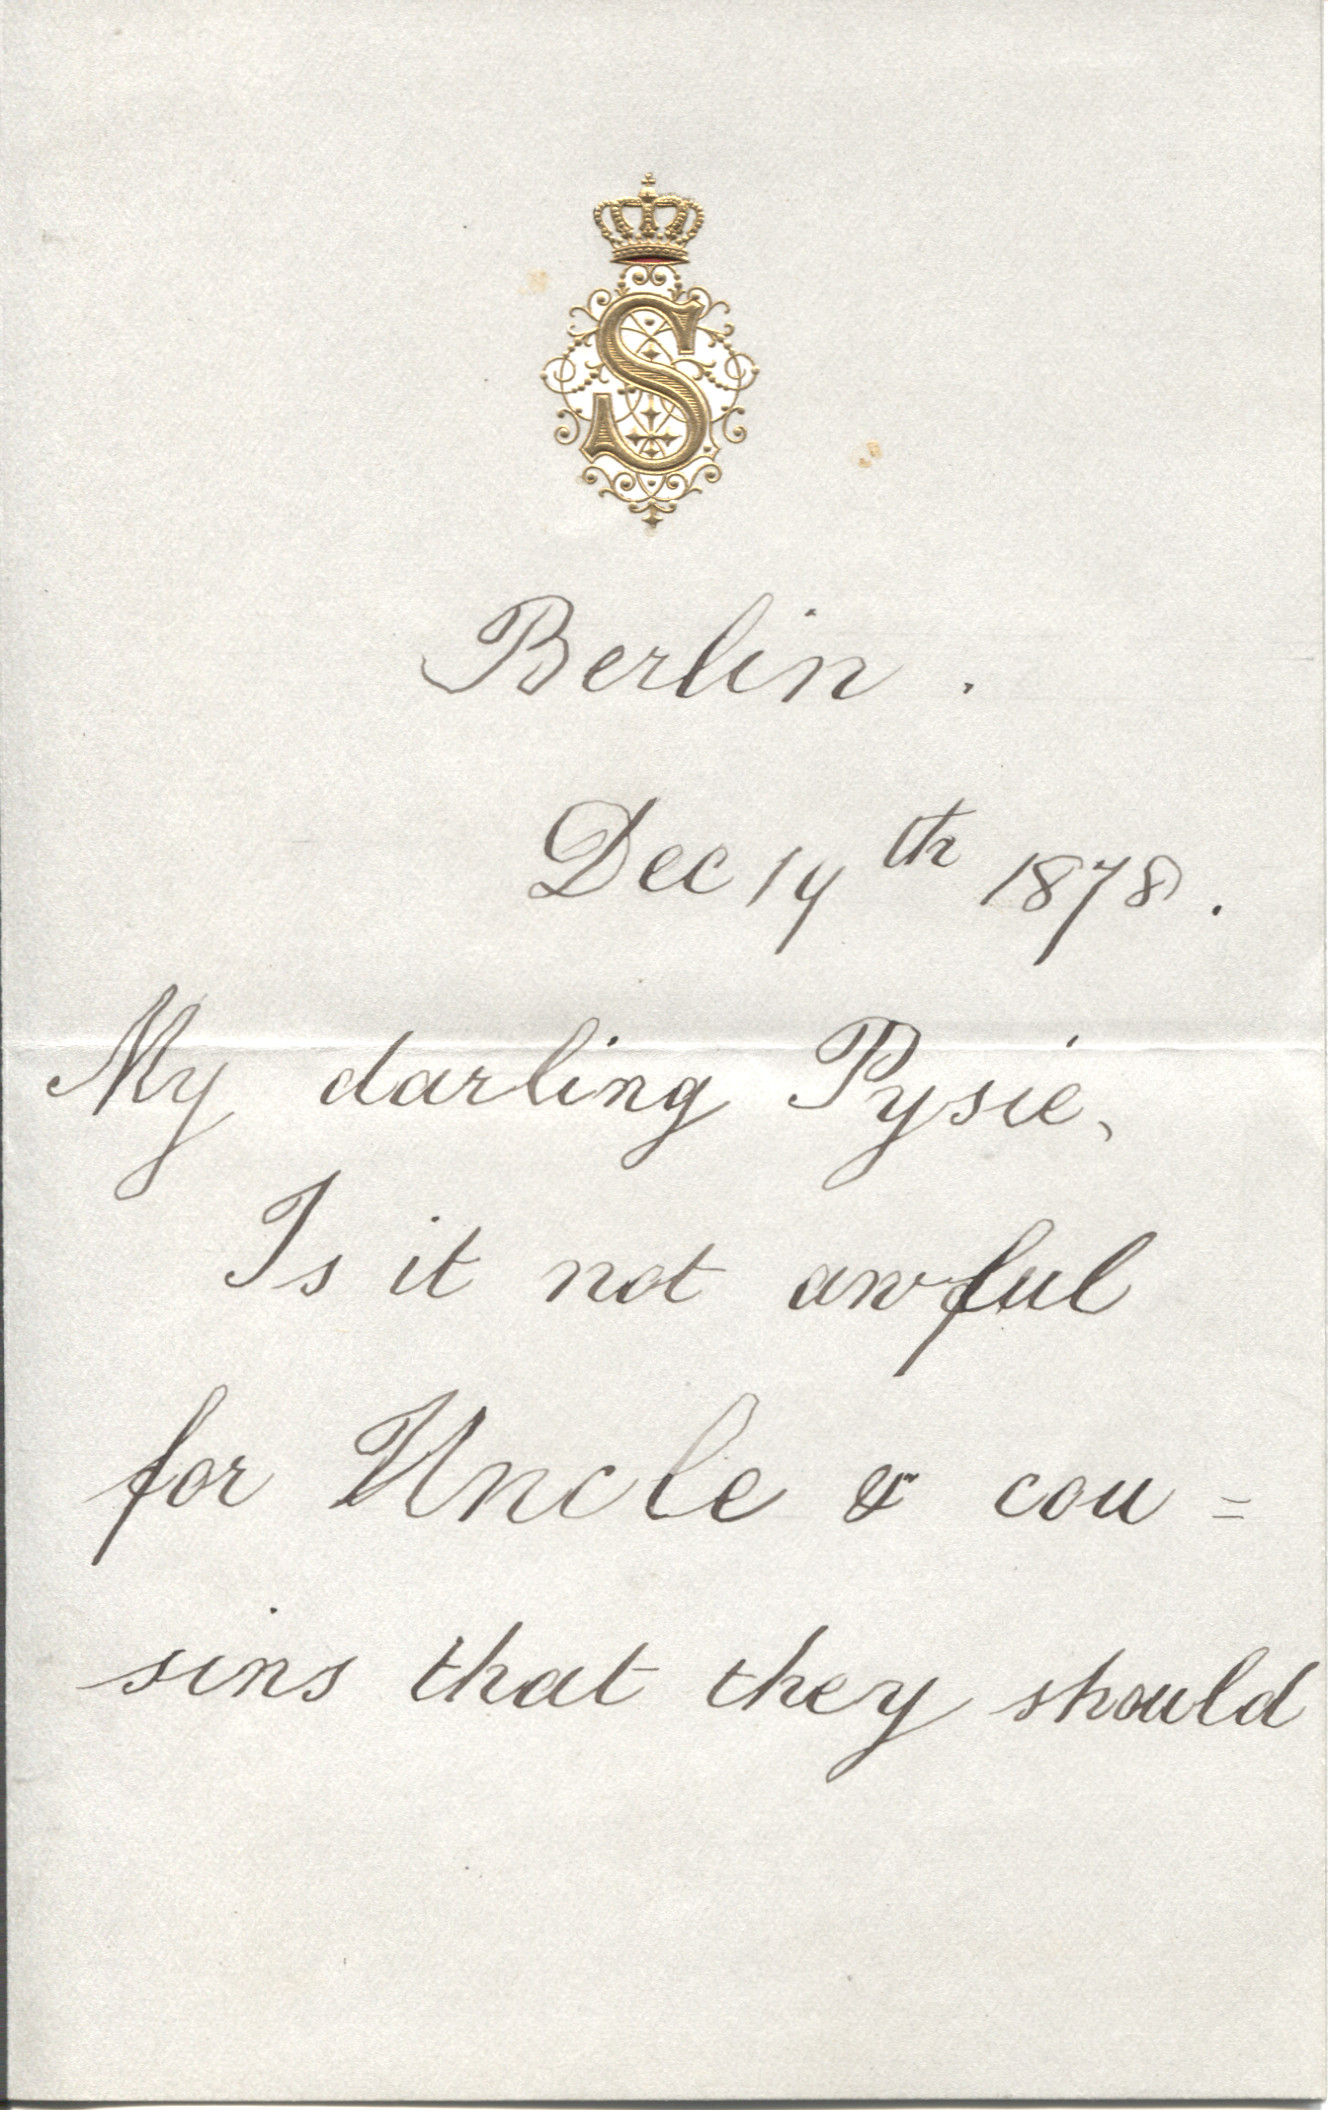 S
Berlin.
Dec 14th 1878.
My darling Pysie,
Is it not awful
for Uncle & cou=
sins that they should